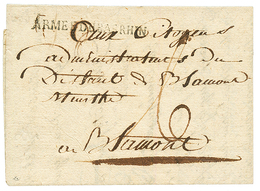 ARMEE DU BAS RHIN
Aux Citoyens
administrateurs du
District de Blamont
Meurthe
en Blamont